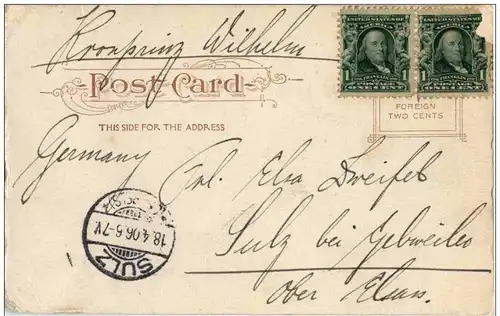 Kronprinz Wilhelm
UNITED STATES OF
FRANKLIN
POSTAGE
1 ONE CENT 1
UNITED STATES OF
FRANKLIN
1 ONE CENT 1
Post Card
FOREIGN
TWO CENTS
THIS SIDE FOR THE ADDRESS
Germany
Frl. Elsa Zweifel
Sulz bei Gebweiler
Ober Elsass.
18.4.06.6-7N.
SULZ